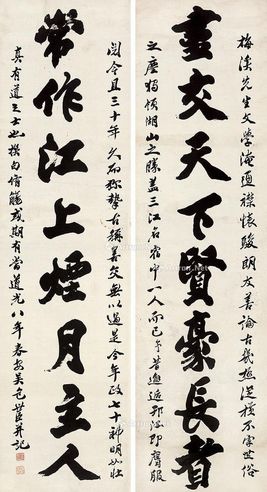 梅溪先生文學淹通襟懷駿朗友善論古幾極從橫不霑世俗
盡交天下賢豪長者
之塵獨領湖山之勝蓋三江名宿中一人而已予昔邂逅邗江即膺服
閱今且三十年久而彌摯古稱善交無以過是今年政七十神明如壯
常作江上煙月主人
真有道之士也撰句侑觴或期有當道光八年春安吳包世臣并記